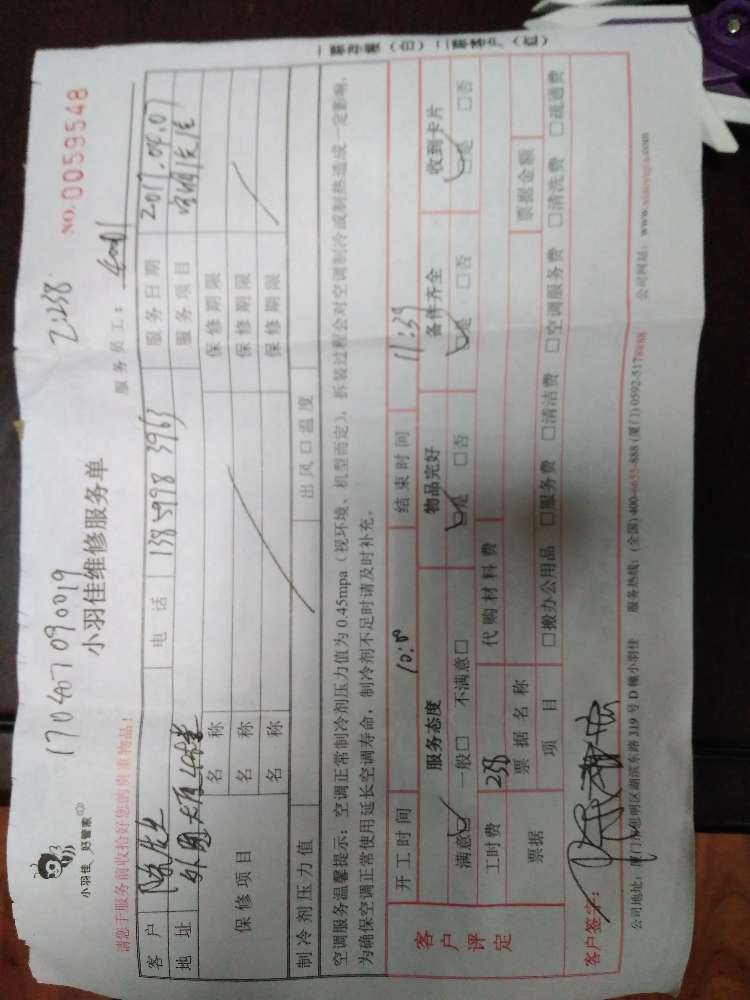 170407090019
2:258
小羽佳 好管家
小羽佳维修服务单
NO. 0059548
请您于服务前收拾好您的贵重物品!
服务员工:
客户 陈先生 电话 13859983963 服务日期 2017.04.07
地址 服务项目
保修项目 名称 保修期限
名称 保修期限
名称 保修期限
制冷剂压力值 出风口温度
空调服务温馨提示: 空调正常制冷剂压力值为 0.45mpa(视环境、机型而定)、拆装过程会对空调制冷或制热造成一定影响。
为确保空调正常使用延长空调寿命,制冷剂不足时请及时补充。
客户评定
开工时间 10:00 结束时间 11:39
服务态度 物品完好 备件齐全 收到卡片
满意☑ 一般□ 不满意□ ☑是 □否 ☑是 □否 ☑是 □否
工时费 258 代购材料费
票据 票据名称 票据金额
项目 □搬办公用品 □服务费 □清洁费 □空调服务费 □清洗费 □疏通费
客户签字:
公司地址: 厦门市思明区湖滨东路 319 号 D 幢小羽佳 服务热线: (全国) 400-6655-888 (厦门) 0592-5178888 公司网站: www.xiaoyujia.com
一联存根(白) 二联客户(红)